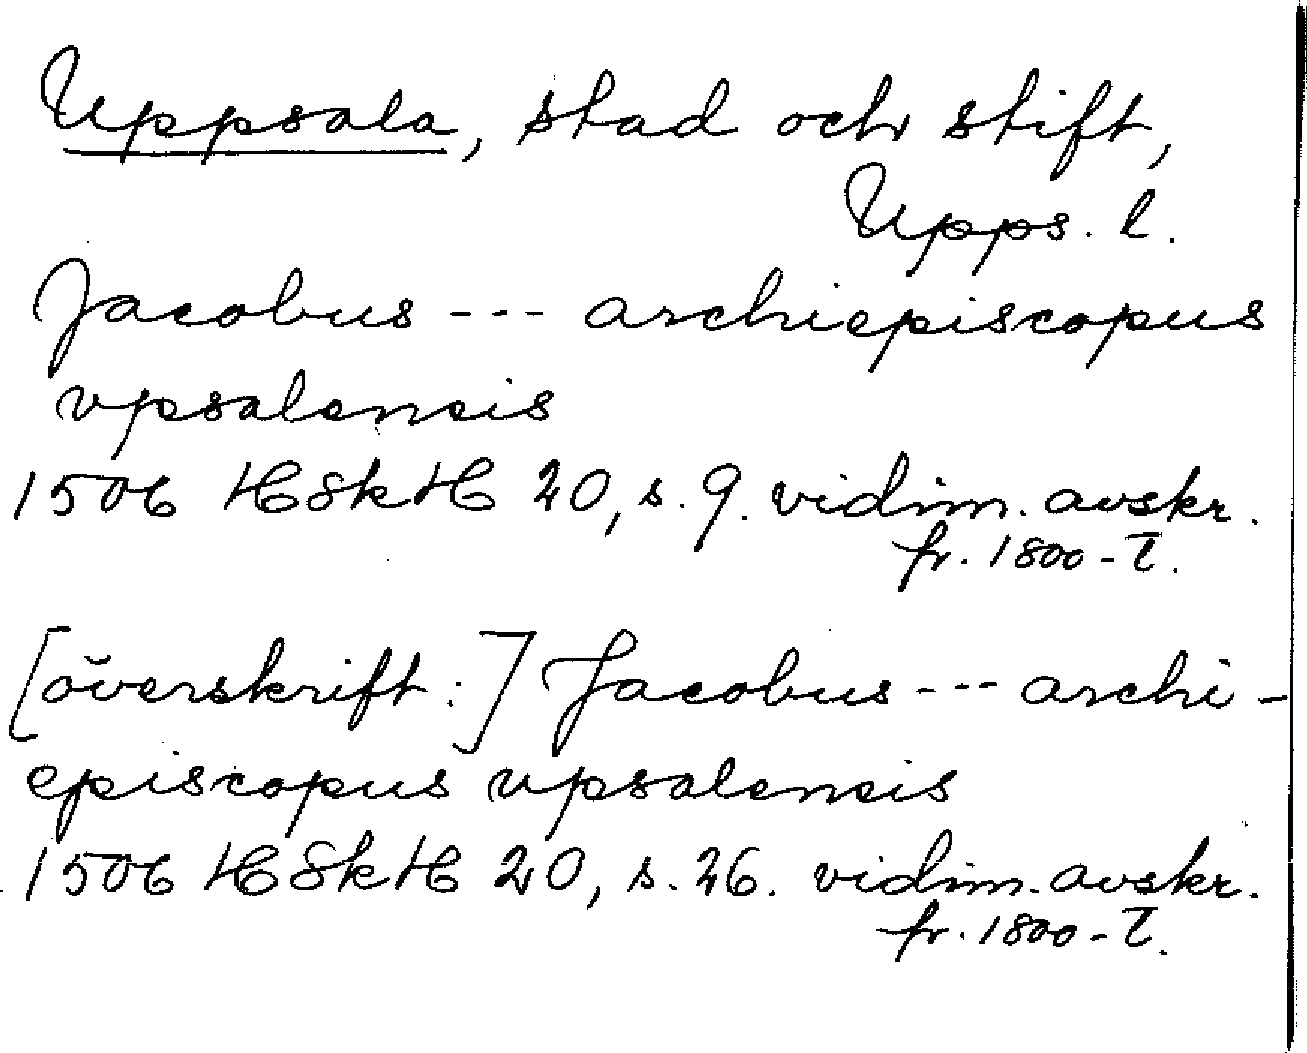 Uppsala, stad och stift,
Upps. l.
Jacobus --- archiepiscopus
vpsalensis
1506 HSkH 20, s. 9. vidim. avskr.
fr. 1800-t.
[överskrift:] Jacobus --- archi-
episcopus vpsalensis
1506 HSkH 20, s. 26. vidim. avskr.
fr. 1800-t.